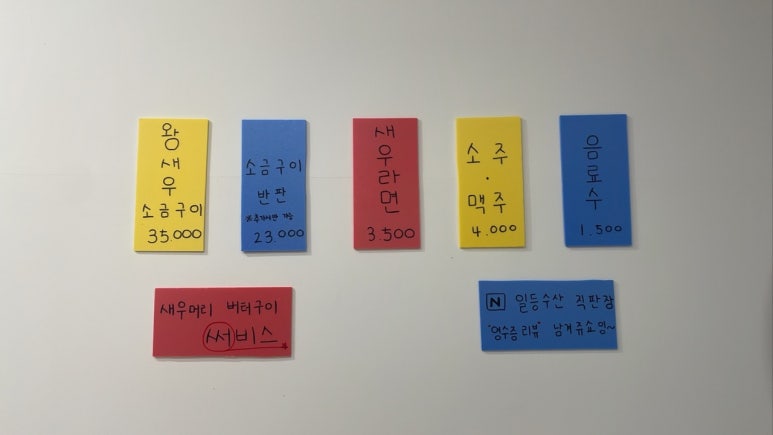 왕
새
우
소금구이
35.000
소금구이
반판
※추가시만 가능
23.000
새
우
라
면
3.500
소 주
·
맥 주
4.000
음
료
수
1.500
새우머리 버터구이
써비스
N 일등수산 직판장
"영수증 리뷰" 남겨쥬쇼잉~